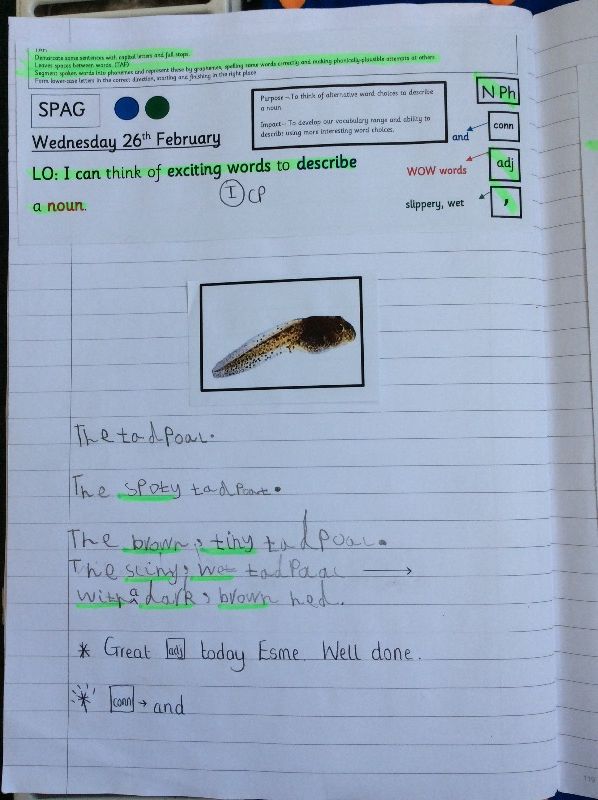 Demarcate some sentences with capital letters and full stops.
Leaves spaces between words. (TAF)
Segment spoken words into phonemes and represent these by graphemes, spelling some words correctly and making phonically-plausible attempts at others.
Form lower-case letters in the correct direction, starting and finishing in the right place
SPAG
Wednesday 26th February
LO: I can think of exciting words to describe
a noun.
I CP
Purpose – To think of alternative word choices to describe
a noun
Impact – To develop our vocabulary range and ability to
describe using more interesting word choices.
N Ph
and
conn
WOW words
adj
slippery, wet
,
The tadpoal.
The spoty tadpoal.
The brown, tiny tadpoal.
The sliny, wet tadpoal →
with a dark, brown hed.
* Great adj today Esme. Well done.
* conn → and
119